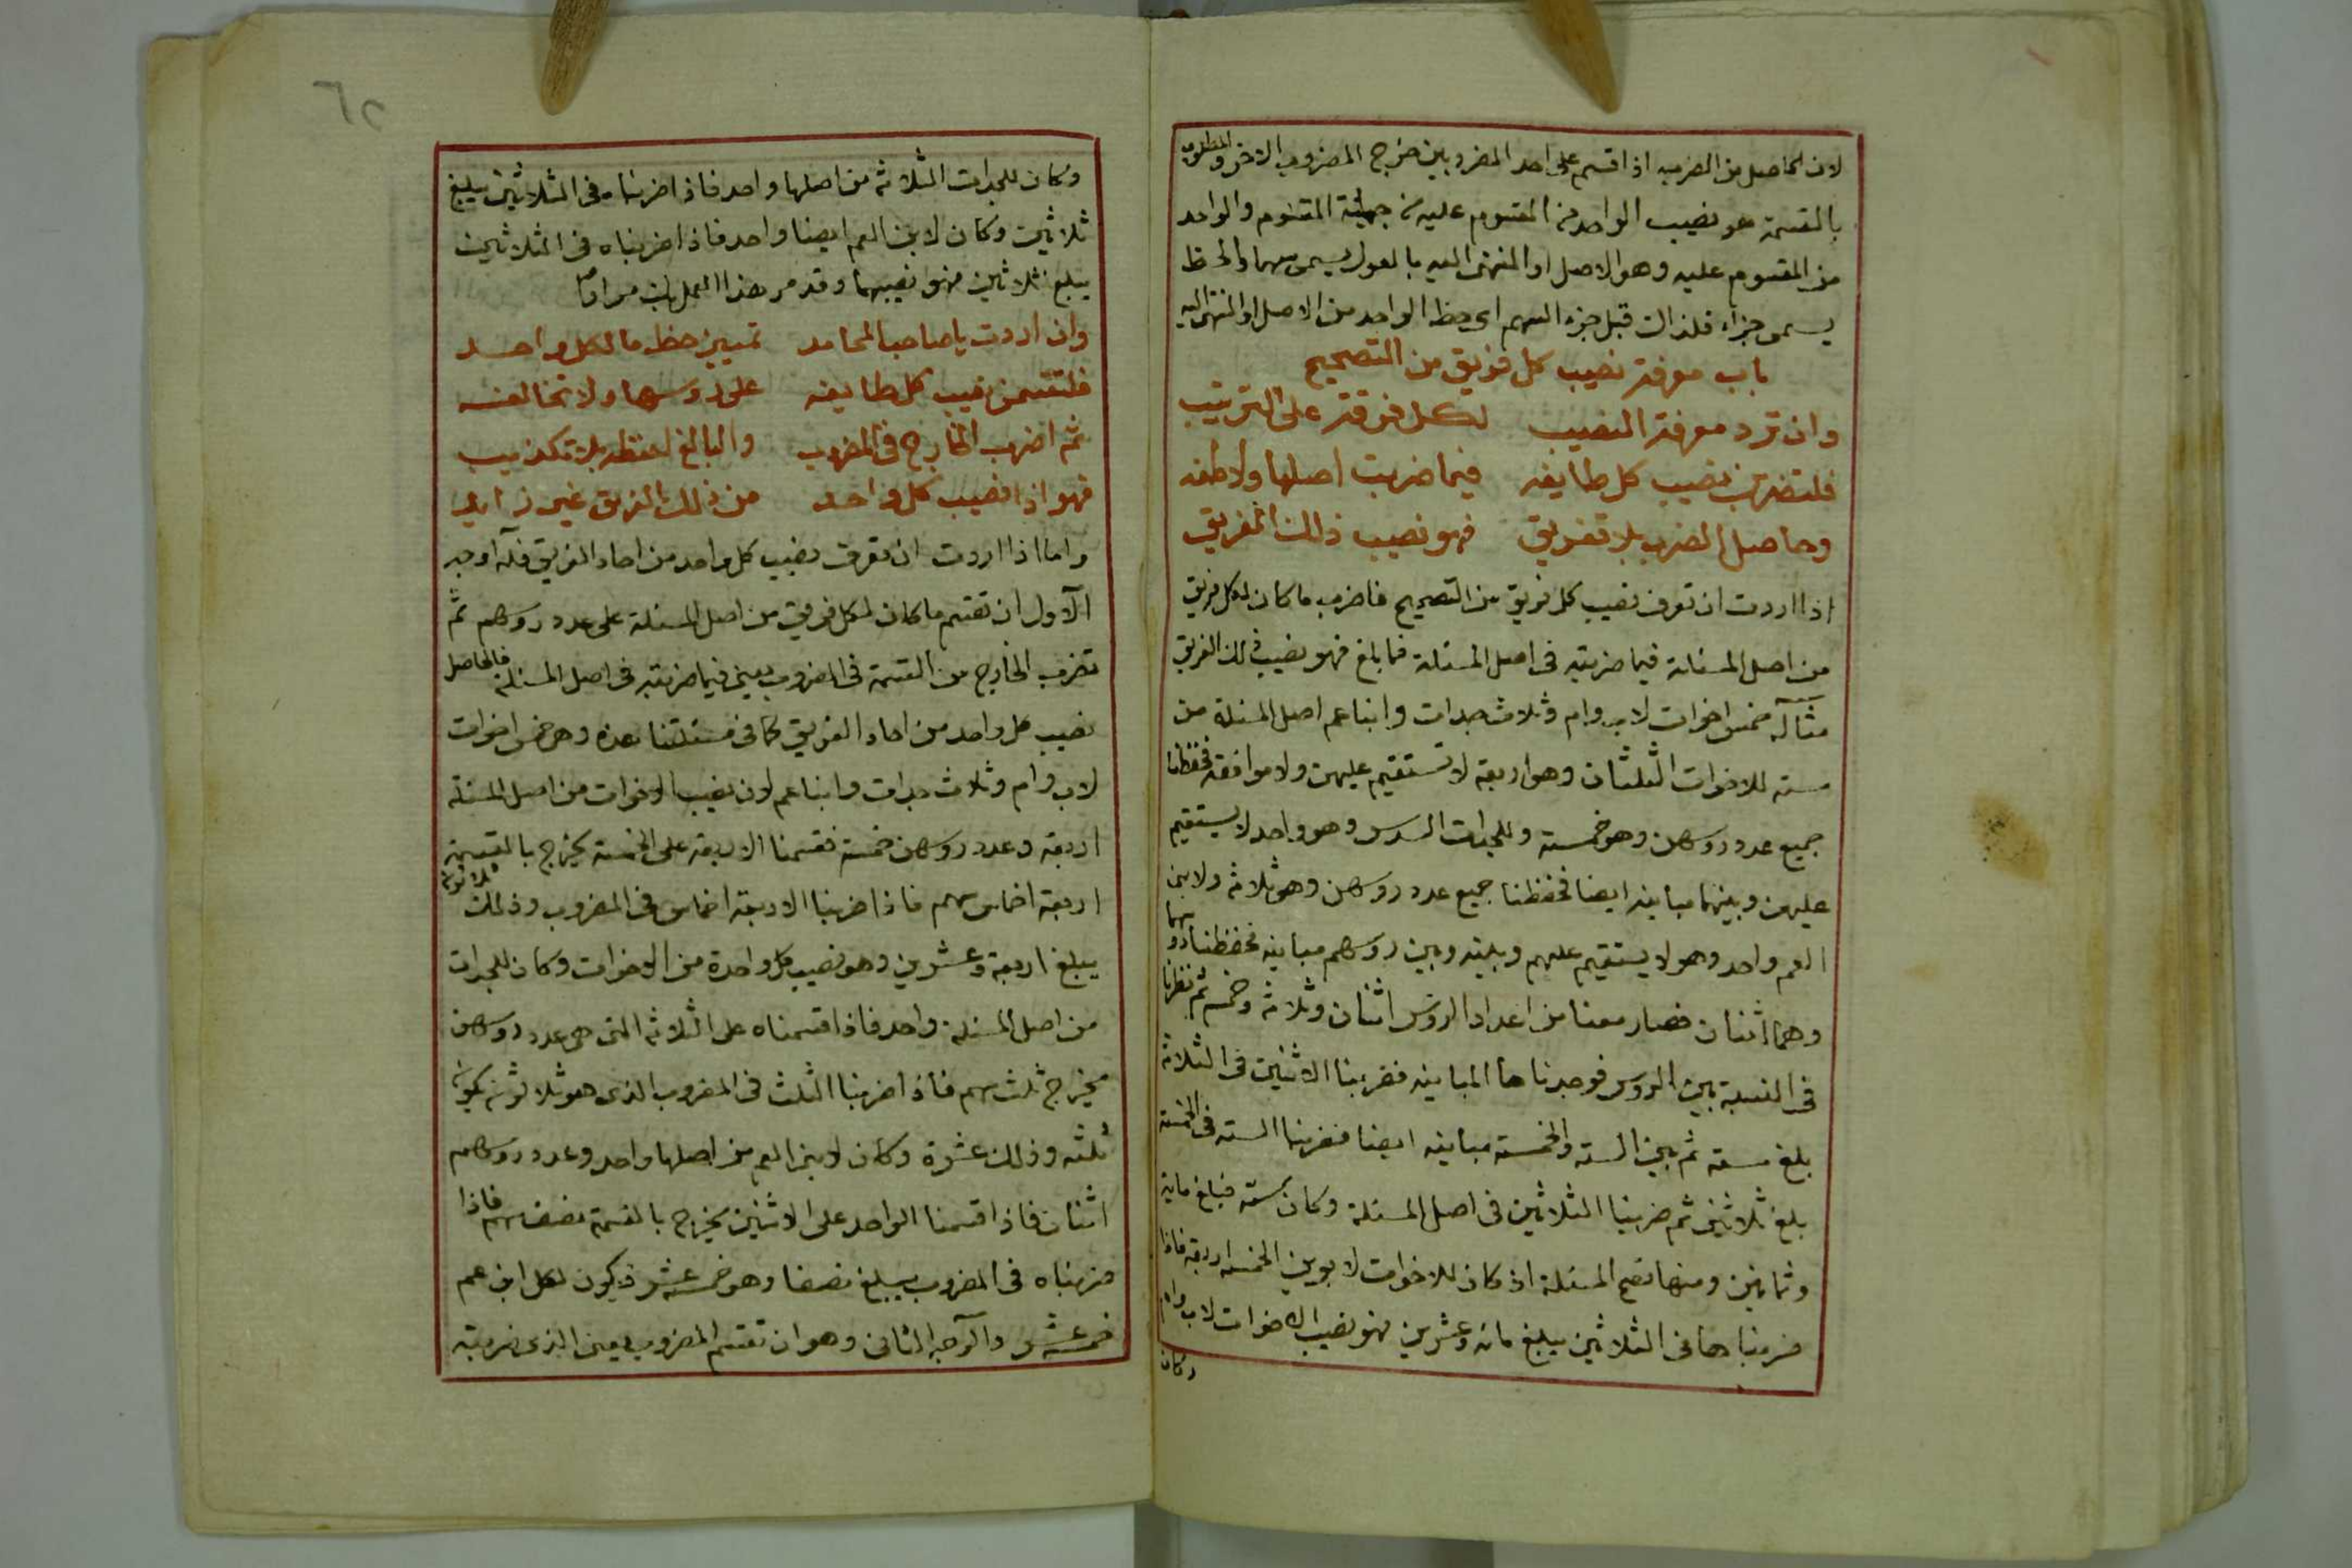 لان الحاصل من الضرب اذا قسم على احد المضروبين خرج المضروب الاخر والمطلوب
بالقسمة هو نصيب الواحد من المقسوم عليه من جملة المقسوم والواحد
من المقسوم عليه وهو الاصل او المنتهى اليه بالعول يسمى سهما والحظ
يسمى جزأ فلذالك قيل جزء السهم اى حظ الواحد من الاصل او المنتهى اليه
باب معرفة نصيب كل فريق من التصحيح
وان ترد معرفة النصيب لكل فرقة على الترتيب
فلتضربن نصيب كل طايفه فيما ضربت اصلها ولاطفه
وحاصل الضرب بلا تفريق فهو نصيب ذالك الفريق
اذا اردت ان تعرف نصيب كل فريق من التصحيح فاضرب ما كان لكل فريق
من اصل المسئلة فيما ضربته فى اصل المسئلة فما بلغ فهو نصيب ذلك الفريق
مثاله خمس اخوات لاب وام وثلاث جدات وابنا عم اصل المسئلة من
سته للاخوات الثلثان وهو اربعة لا تستقيم عليهن ولا موافقة فحفظنا
جميع عدد روسهن وهو خمسة وللجدات السدس وهو واحد لا يستقيم
عليهن وبينهما مباينه ايضا فحفظنا جميع عدد روسهن وهو ثلاثه ولابنى
العم واحد وهو لا يستقيم عليهم وبينه وبين روسهم مباينه فحفظنا روسهما
وهما اثنان فصار معنا من اعداد الروس اثنان وثلاثه وخمسه ثم نظرنا
فى النسبة بين الروس فوجدناها المباينه فضربنا الاثنين فى الثلاثه
بلغ سته ثم بين السته والخمسه مباينه ايضا فضربنا السته فى الخمسه
بلغ ثلاثين ثم ضربنا الثلاثين فى اصل المسئلة وكان سته فبلغ مايه
وثمانين ومنها تصح المسئلة اذ كان للاخوات لابوين الخمسه اربعة فاذا
ضربناها فى الثلاثين يبلغ مائه وعشرين فهو نصيب الاخوات لاب وام
وكان
٦٢
وكان للجدات الثلاثه من اصلها واحد فاذا ضربناه فى الثلاثين يبلغ
ثلاثين وكان لابن العم ايضا واحد فاذا ضربناه فى الثلاثين
يبلغ ثلاثين فهو نصيبهما وقد مر هذا العمل مرارا
وان اردت يا صاحب المحامد تمييز حظ ما لكل واحد
فلتقسمن نصيب كل طايفه على روسها ولا تخالفه
ثم اضرب الخارج فى المضروب والبالغ احفظه بلا تكذيب
فهو اذا نصيب كل واحد من ذلك الفريق غير زايد
واما اذا اردت ان تعرف نصيب كل واحد من احاد الفريق فله اوجه
الاول ان تقسم ما كان لكل فريق من اصل المسئلة على عدد روسهم ثم
تضرب الخارج من القسمة فى المضروب يعنى فيما ضربته فى اصل المسئلة فالحاصل
نصيب كل واحد من احاد الفريق كما فى مسئلتنا هذه وهى خمس اخوات
لاب وام وثلاث جدات وابنا عم لان نصيب الاخوات من اصل المسئلة
اربعة وعدد روسهن خمسة فقسمنا الاربعة على الخمسة يخرج بالقسمة
اربعة اخماس سهم فاذا ضربنا الاربعة اخماس فى المضروب وذلك ثلاثون
يبلغ اربعة وعشرين وهو نصيب كل واحدة من الاخوات وكان للجدات
من اصل المسئلة واحد فاذا قسمناه على الثلاثه التى هى عدد روسهن
يخرج ثلث سهم فاذا ضربنا الثلث فى المضروب الذى هو ثلاثون يكون
ثلثه وذلك عشرة وكان لابنى العم من اصلها واحد وعدد روسهم
اثنان فاذا قسمنا الواحد على الاثنين يخرج بالقسمة نصف سهم فاذا
ضربناه فى المضروب يبلغ نصفا وهو خمسة عشر فيكون لكل ابن عم
خمسة عشر والوجه الثانى وهو ان تقسم المضروب يعنى الذى ضربته